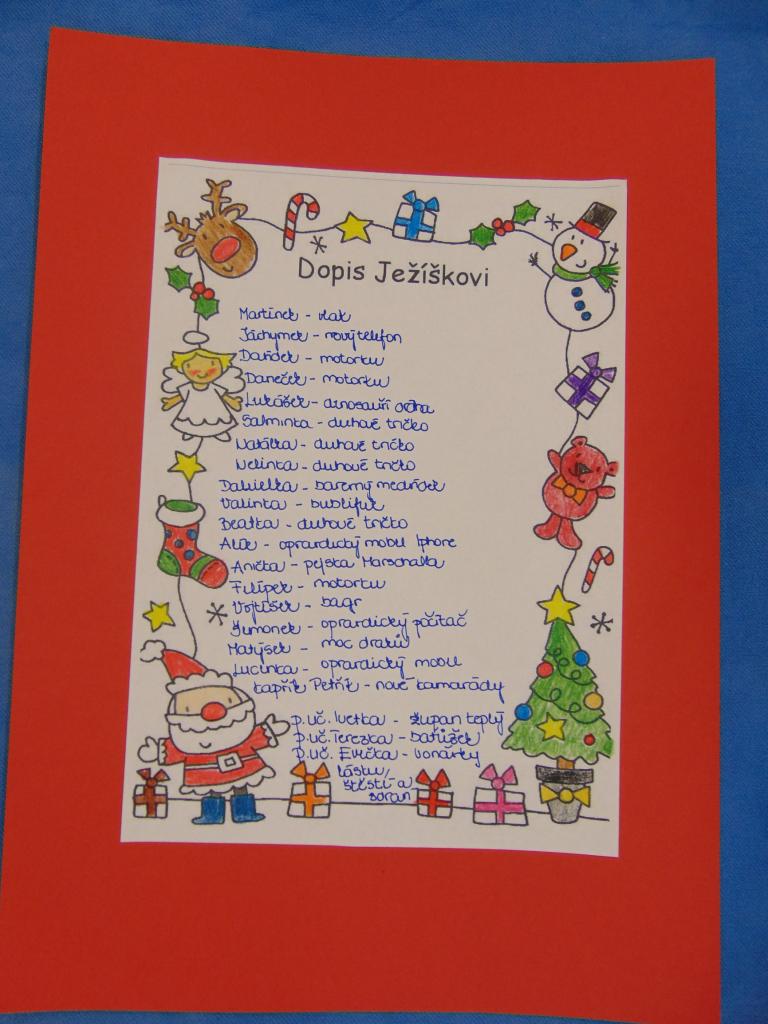 Dopis Ježíškovi
Martínek - vlak
Jáchymek - nový telefon
Daneček - motorku
Lukášek - dinosauří
Salminka - duhové tričko
Natálka - duhové tričko
Nelinka - duhové tričko
Danielka - barevný medvídek
Valinka -
Beatka - duhové tričko
Alík - opravdický mobil Iphone
Anička - pejska Marschalla
Filípek - motorku
Vojtíšek - bagr
Šimonek - opravdický počítač
Matýsek - moc draků
Lucinka - opravdický mobil
kapřík Petřík - nové kamarády
p.uč. Ivetka - župan teplý
p.uč. Terezka -
p.uč. Evička - voňavky
lásku,
štěstí a